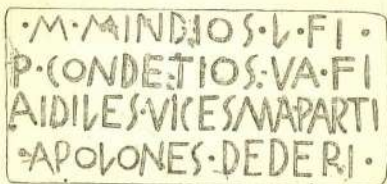 ·M·MINDIOS·L·FI·
P·CONDETIOS·VA·FI
AIDILES·VICESMAPARTI
·APOLONES·DEDERI·